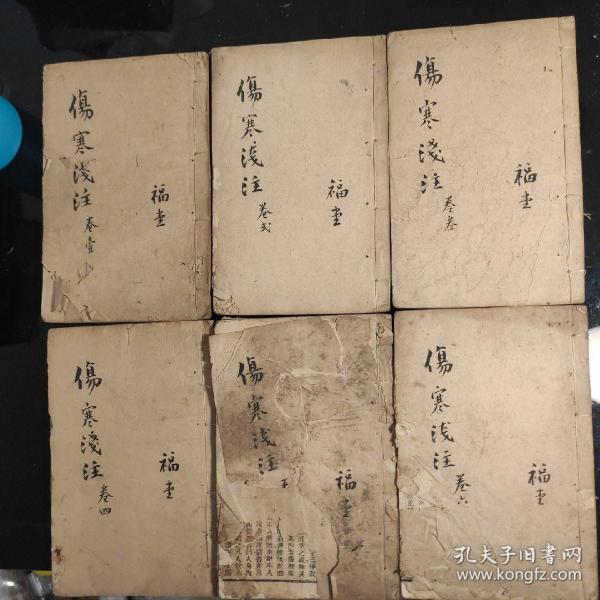 傷寒淺注 卷壹
福堂
傷寒淺注 卷弍
福堂
傷寒淺注 卷叁
福堂
傷寒淺注 卷四
福堂
傷寒淺注
福堂
傷寒淺注 卷六
福堂
孔夫子旧书网
www.kongfz.com